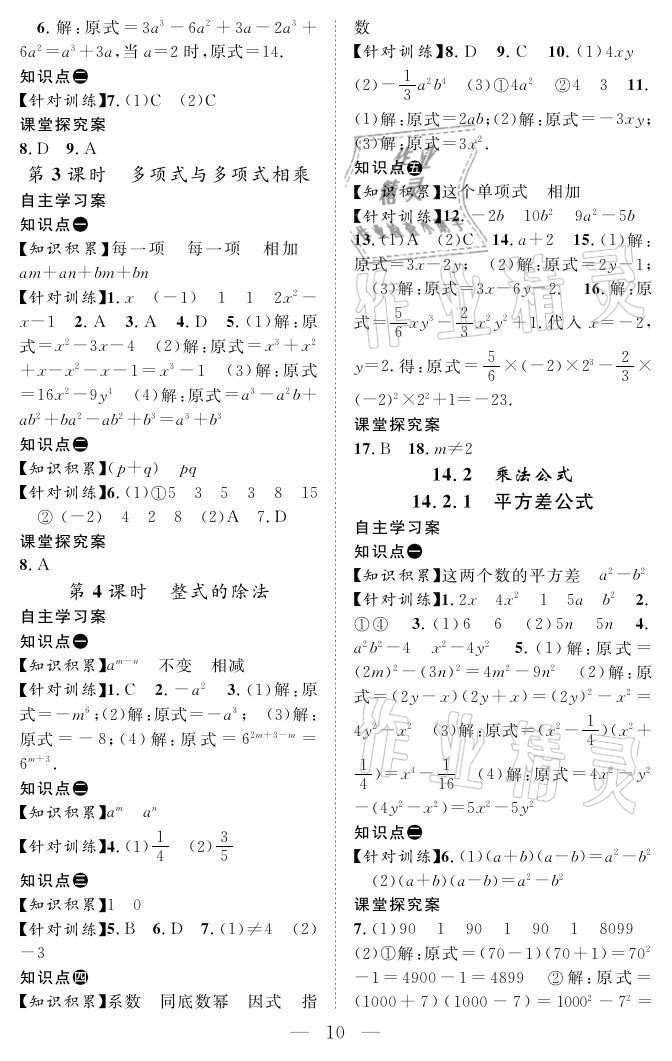 6. 解:原式=3a³-6a²+3a-2a³+
6a²=a³+3a,当 a=2 时,原式=14.
知识点二
【针对训练】7. (1)C (2)C
课堂探究案
8. D 9. A
第 3 课时 多项式与多项式相乘
自主学习案
知识点一
【知识积累】每一项 每一项 相加
am+an+bm+bn
【针对训练】1. x (-1) 1 1 2x²-
x-1 2. A 3. A 4. D 5. (1)解:原
式=x²-3x-4 (2)解:原式=x³+x²
+x-x²-x-1=x³-1 (3)解:原式
=16x²-9y⁴ (4)解:原式=a³-a²b+
ab²+ba²-ab²+b³=a³+b³
知识点二
【知识积累】(p+q) pq
【针对训练】6. (1)①5 3 5 3 8 15
②(-2) 4 2 8 (2)A 7. D
课堂探究案
8. A
第 4 课时 整式的除法
自主学习案
知识点一
【知识积累】a^{m-n} 不变 相减
【针对训练】1. C 2. -a² 3. (1)解:原
式=-m⁶;(2)解:原式=-a³; (3)解:
原式=-8;(4)解:原式=6^{2m+3-m}=
6^{m+3}.
知识点二
【知识积累】a^m a^n
【针对训练】4. (1)1/4 (2)3/5
知识点三
【知识积累】1 0
【针对训练】5. B 6. D 7. (1)≠4 (2)
-3
知识点四
【知识积累】系数 同底数幂 因式 指
数
【针对训练】8. D 9. C 10. (1)4xy
(2)-1/3 a²b⁴ (3)①4a² ②4 3 11.
(1)解:原式=2ab;(2)解:原式=-3xy;
(3)解:原式=3x².
知识点五
【知识积累】这个单项式 相加
【针对训练】12. -2b 10b² 9a²-5b
13. (1)A (2)C 14. a+2 15. (1)解:
原式=3x-2y; (2)解:原式=2y-1;
(3)解:原式=3x-6y-2. 16. 解:原
式=5/6 xy³-2/3 x²y²+1. 代入 x=-2,
y=2. 得:原式=5/6×(-2)×2³-2/3×
(-2)²×2²+1=-23.
课堂探究案
17. B 18. m≠2
14.2 乘法公式
14.2.1 平方差公式
自主学习案
知识点一
【知识积累】这两个数的平方差 a²-b²
【针对训练】1. 2x 4x² 1 5a b² 2.
①④ 3. (1)6 6 (2)5n 5n 4.
a²b²-4 x²-4y² 5. (1)解:原式=
(2m)²-(3n)²=4m²-9n² (2)解:原
式=(2y-x)(2y+x)=(2y)²-x²=
4y²-x² (3)解:原式=(x²-1/4)(x²+
1/4)=x⁴-1/16 (4)解:原式=4x²-y²
-(4y²-x²)=5x²-5y²
知识点二
【针对训练】6. (1)(a+b)(a-b)=a²-b²
(2)(a+b)(a-b)=a²-b²
课堂探究案
7. (1)90 1 90 1 90 1 8099
(2)①解:原式=(70-1)(70+1)=70²
-1=4900-1=4899 ②解:原式=
(1000+7)(1000-7)=1000²-7²=
— 10 —
作业精灵
作业精灵
作业精灵